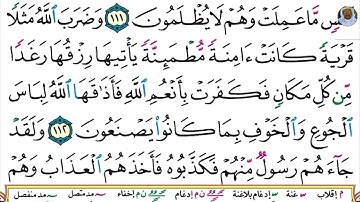 سٖ مَّا عَمِلَتْ وَهُمْ لَا يُظْلَمُونَ ١١١ وَضَرَبَ ٱللَّهُ مَثَلًا
قَرْيَةً كَانَتْ ءَامِنَةً مُّطْمَئِنَّةً يَأْتِيهَا رِزْقُهَا رَغَدًا
مِّن كُلِّ مَكَانٍ فَكَفَرَتْ بِأَنْعُمِ ٱللَّهِ فَأَذَٰقَهَا ٱللَّهُ لِبَاسَ
ٱلْجُوعِ وَٱلْخَوْفِ بِمَا كَانُوا۟ يَصْنَعُونَ ١١٢ وَلَقَدْ
جَآءَهُمْ رَسُولٌ مِّنْهُمْ فَكَذَّبُوهُ فَأَخَذَهُمُ ٱلْعَذَابُ وَهُمْ
م إقلاب غنة إدغام بلاغنة ن م إدغام ن م إخفاء مد متصل مد منفصل